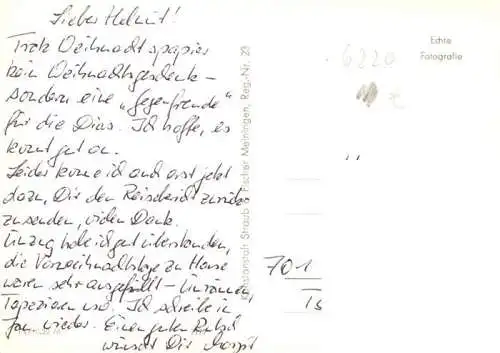 Lieber Helmut!
Trotz Weihnachtspapier
kein Weihnachtsgeschenk –
sondern eine „Gegenfreude“
für die Dias. Ich hoffe, es
kommt gut an.
Leider komme ich auch erst jetzt
dazu, Dir den Reisebericht zurück-
zusenden, vielen Dank.
Umzug habe ich gut überstanden,
die Vorweihnachtstage zu Hause
waren sehr ausgefüllt – Umräumen,
Tapezieren usw. Ich schreibe im
Jan. wieder. Einen guten Rutsch
wünscht Dir Margit
Kunstanstalt Straub & Fischer Meiningen, Reg.-Nr. 23
Echte
Fotografie
6220
701
15